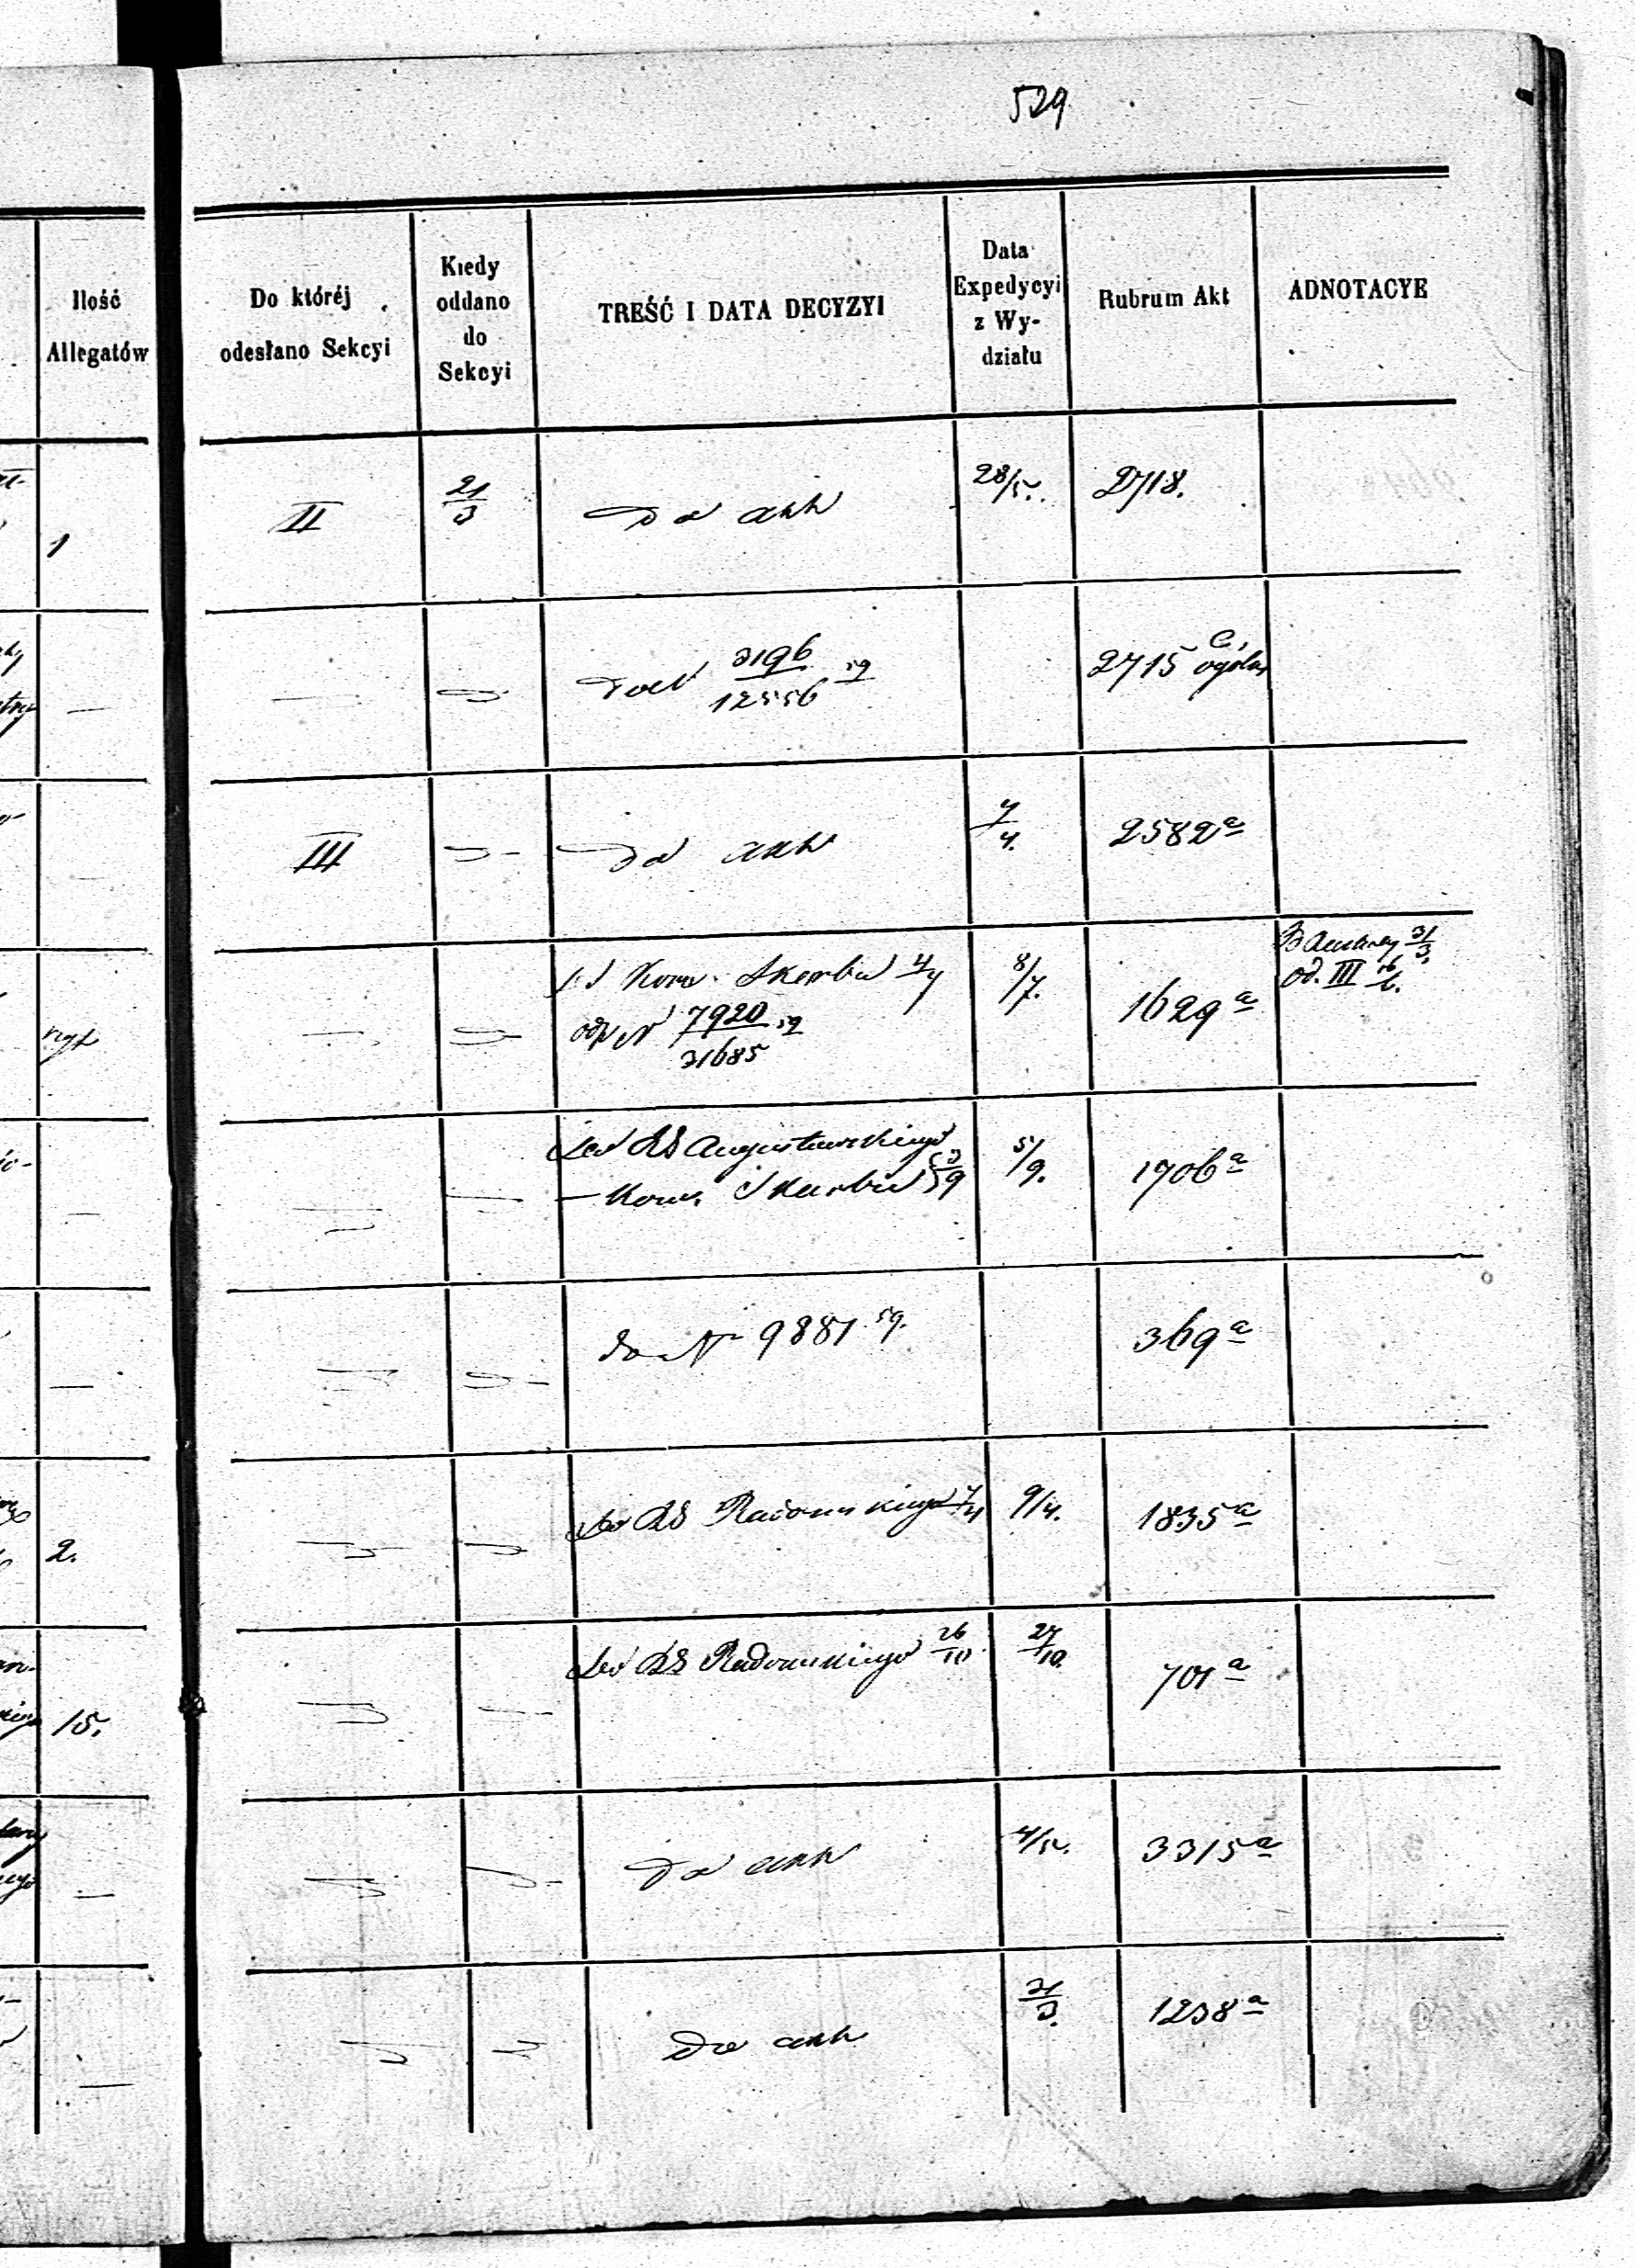 529
Ilość
Allegatów
Do któréj
odesłano Sekcyi
Kiedy
oddano
do
Sekcyi
TREŚĆ I DATA DECYZYI
Data
Expedycyi
z Wy-
działu
Rubrum Akt
ADNOTACYE
1
II
21/3
Do akt
28/5.
2718.
—
3196/12556 59
2715
—
III
Do akt
7/4.
2582 a
Kom. Skarbu 4/4
od N 7920/31685 59
8/7.
1629 a
31/3
od. III
—
Do RG Augustowskiego
— Kom. Skarbu 3/9
5/9.
1706 a
—
do N 9881 59.
369 a
2.
Do RG Radomskiego 7/4
9/4.
1835 a
15.
Do RG Radomskiego 26/10
27/10.
701 a
—
Do akt
4/5.
3315 a
—
Do akt
31/3.
1238 a